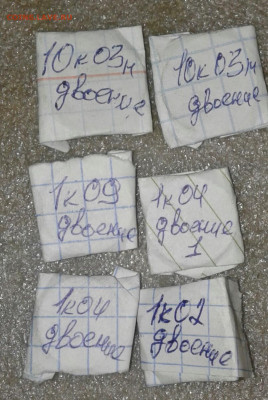 10к03м
двоение
10к03м
двоение
1к09
двоение
1к04
двоение
1
1к04
двоение
1к02
двоение